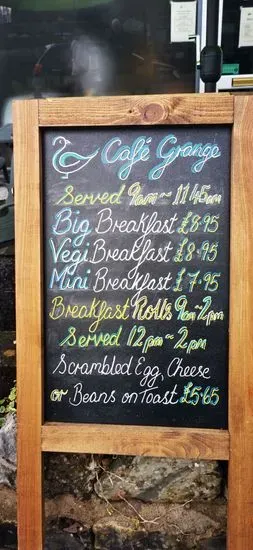 Café Grange
Served 9am ~ 11.45am
Big Breakfast £8.95
Vegi Breakfast £8.95
Mini Breakfast £7.95
Breakfast Rolls 9am-2pm
Served 12pm ~ 2pm
Scrambled Egg, Cheese
or Beans on Toast £5.65